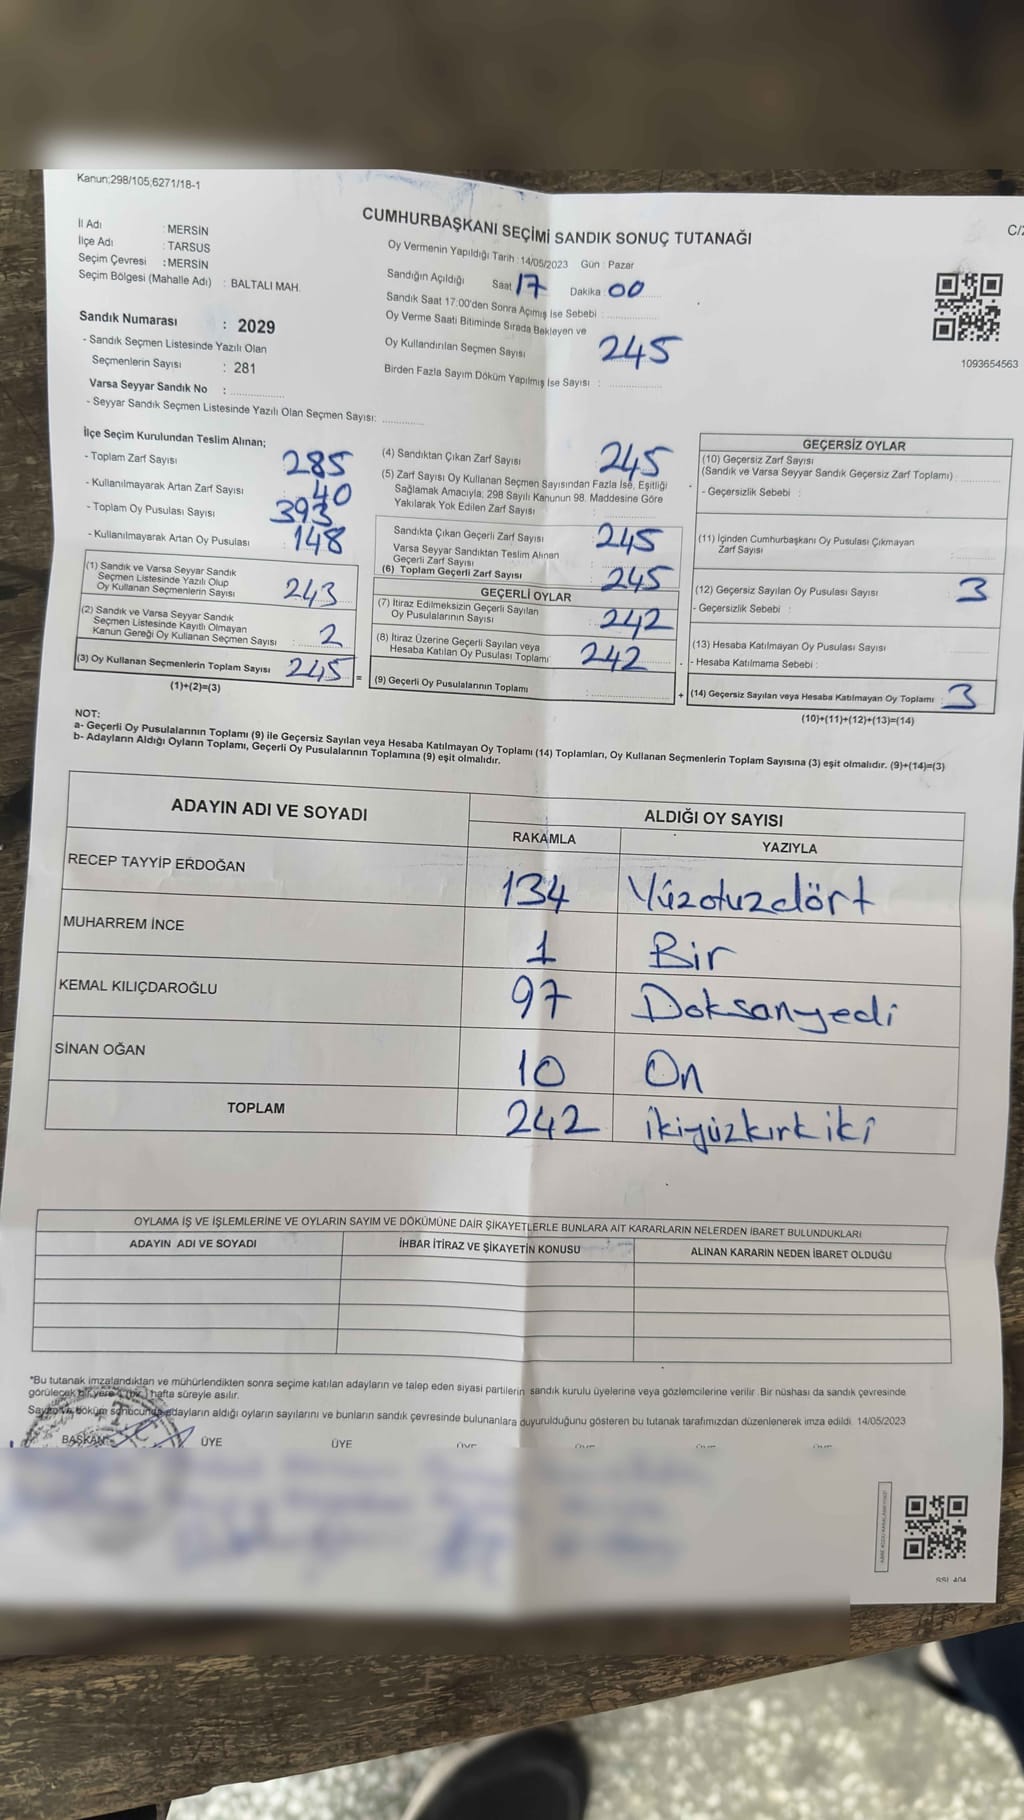 Kanun;298/105;6271/18-1
CUMHURBAŞKANI SEÇİMİ SANDIK SONUÇ TUTANAĞI
C/2
İl Adı : MERSİN
İlçe Adı : TARSUS
Seçim Çevresi : MERSİN
Seçim Bölgesi (Mahalle Adı) : BALTALI MAH.
Sandık Numarası : 2029
- Sandık Seçmen Listesinde Yazılı Olan
Seçmenlerin Sayısı : 281
Varsa Seyyar Sandık No :
- Seyyar Sandık Seçmen Listesinde Yazılı Olan Seçmen Sayısı:
Oy Vermenin Yapıldığı Tarih : 14/05/2023 Gün : Pazar
Sandığın Açıldığı Saat 17 Dakika 00
Sandık Saat 17.00'den Sonra Açılmış İse Sebebi :
Oy Verme Saati Bitiminde Sırada Bekleyen ve
Oy Kullandırılan Seçmen Sayısı 245
Birden Fazla Sayım Döküm Yapılmış İse Sayısı :
1093654563
İlçe Seçim Kurulundan Teslim Alınan;
- Toplam Zarf Sayısı 285
- Kullanılmayarak Artan Zarf Sayısı 40
- Toplam Oy Pusulası Sayısı 393
- Kullanılmayarak Artan Oy Pusulası 148
(1) Sandık ve Varsa Seyyar Sandık
Seçmen Listesinde Yazılı Olup
Oy Kullanan Seçmenlerin Sayısı 243
(2) Sandık ve Varsa Seyyar Sandık
Seçmen Listesinde Kayıtlı Olmayan
Kanun Gereği Oy Kullanan Seçmen Sayısı 2
(3) Oy Kullanan Seçmenlerin Toplam Sayısı 245 =
(1)+(2)=(3)
(4) Sandıktan Çıkan Zarf Sayısı 245
(5) Zarf Sayısı Oy Kullanan Seçmen Sayısından Fazla İse, Eşitliği
Sağlamak Amacıyla; 298 Sayılı Kanunun 98. Maddesine Göre
Yakılarak Yok Edilen Zarf Sayısı :
Sandıkta Çıkan Geçerli Zarf Sayısı : 245
Varsa Seyyar Sandıktan Teslim Alınan
Geçerli Zarf Sayısı :
(6) Toplam Geçerli Zarf Sayısı : 245
GEÇERLİ OYLAR
(7) İtiraz Edilmeksizin Geçerli Sayılan
Oy Pusulalarının Sayısı : 242
(8) İtiraz Üzerine Geçerli Sayılan veya
Hesaba Katılan Oy Pusulası Toplamı 242
(9) Geçerli Oy Pusulalarının Toplamı : +
GEÇERSİZ OYLAR
(10) Geçersiz Zarf Sayısı
(Sandık ve Varsa Seyyar Sandık Geçersiz Zarf Toplamı) :
- Geçersizlik Sebebi :
(11) İçinden Cumhurbaşkanı Oy Pusulası Çıkmayan
Zarf Sayısı :
(12) Geçersiz Sayılan Oy Pusulası Sayısı : 3
- Geçersizlik Sebebi :
(13) Hesaba Katılmayan Oy Pusulası Sayısı
- Hesaba Katılmama Sebebi :
(14) Geçersiz Sayılan veya Hesaba Katılmayan Oy Toplamı : 3
(10)+(11)+(12)+(13)=(14)
NOT:
a- Geçerli Oy Pusulalarının Toplamı (9) ile Geçersiz Sayılan veya Hesaba Katılmayan Oy Toplamı (14) Toplamları, Oy Kullanan Seçmenlerin Toplam Sayısına (3) eşit olmalıdır. (9)+(14)=(3)
b- Adayların Aldığı Oyların Toplamı, Geçerli Oy Pusulalarının Toplamına (9) eşit olmalıdır.
ADAYIN ADI VE SOYADI ALDIĞI OY SAYISI
RAKAMLA YAZIYLA
RECEP TAYYİP ERDOĞAN 134 Yüzotuzdört
MUHARREM İNCE 1 Bir
KEMAL KILIÇDAROĞLU 97 Doksanyedi
SİNAN OĞAN 10 On
TOPLAM 242 ikiyüzkırkiki
OYLAMA İŞ VE İŞLEMLERİNE VE OYLARIN SAYIM VE DÖKÜMÜNE DAİR ŞİKAYETLERLE BUNLARA AİT KARARLARIN NELERDEN İBARET BULUNDUKLARI
ADAYIN ADI VE SOYADI İHBAR İTİRAZ VE ŞİKAYETİN KONUSU ALINAN KARARIN NEDEN İBARET OLDUĞU
*Bu tutanak imzalandıktan ve mühürlendikten sonra seçime katılan adayların ve talep eden siyasi partilerin sandık kurulu üyelerine veya gözlemcilerine verilir. Bir nüshası da sandık çevresinde
görülecek bir yere 1 (bir) hafta süreyle asılır.
Sayım ve döküm sonucunda adayların aldığı oyların sayılarını ve bunların sandık çevresinde bulunanlara duyurulduğunu gösteren bu tutanak tarafımızdan düzenlenerek imza edildi. 14/05/2023
BAŞKAN ÜYE ÜYE